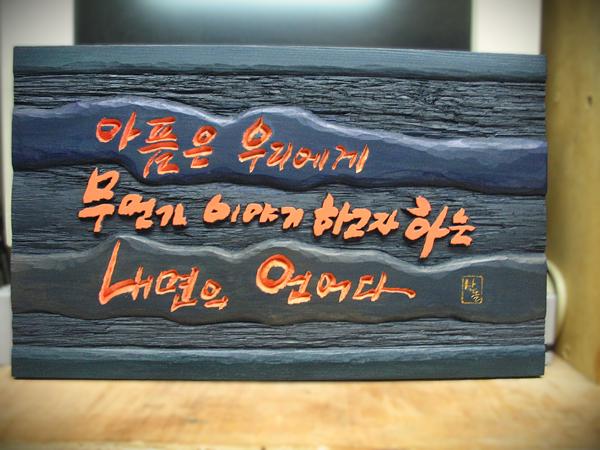 아픔은 우리에게
무언가 이야기 하고자 하는
내면의 언어다